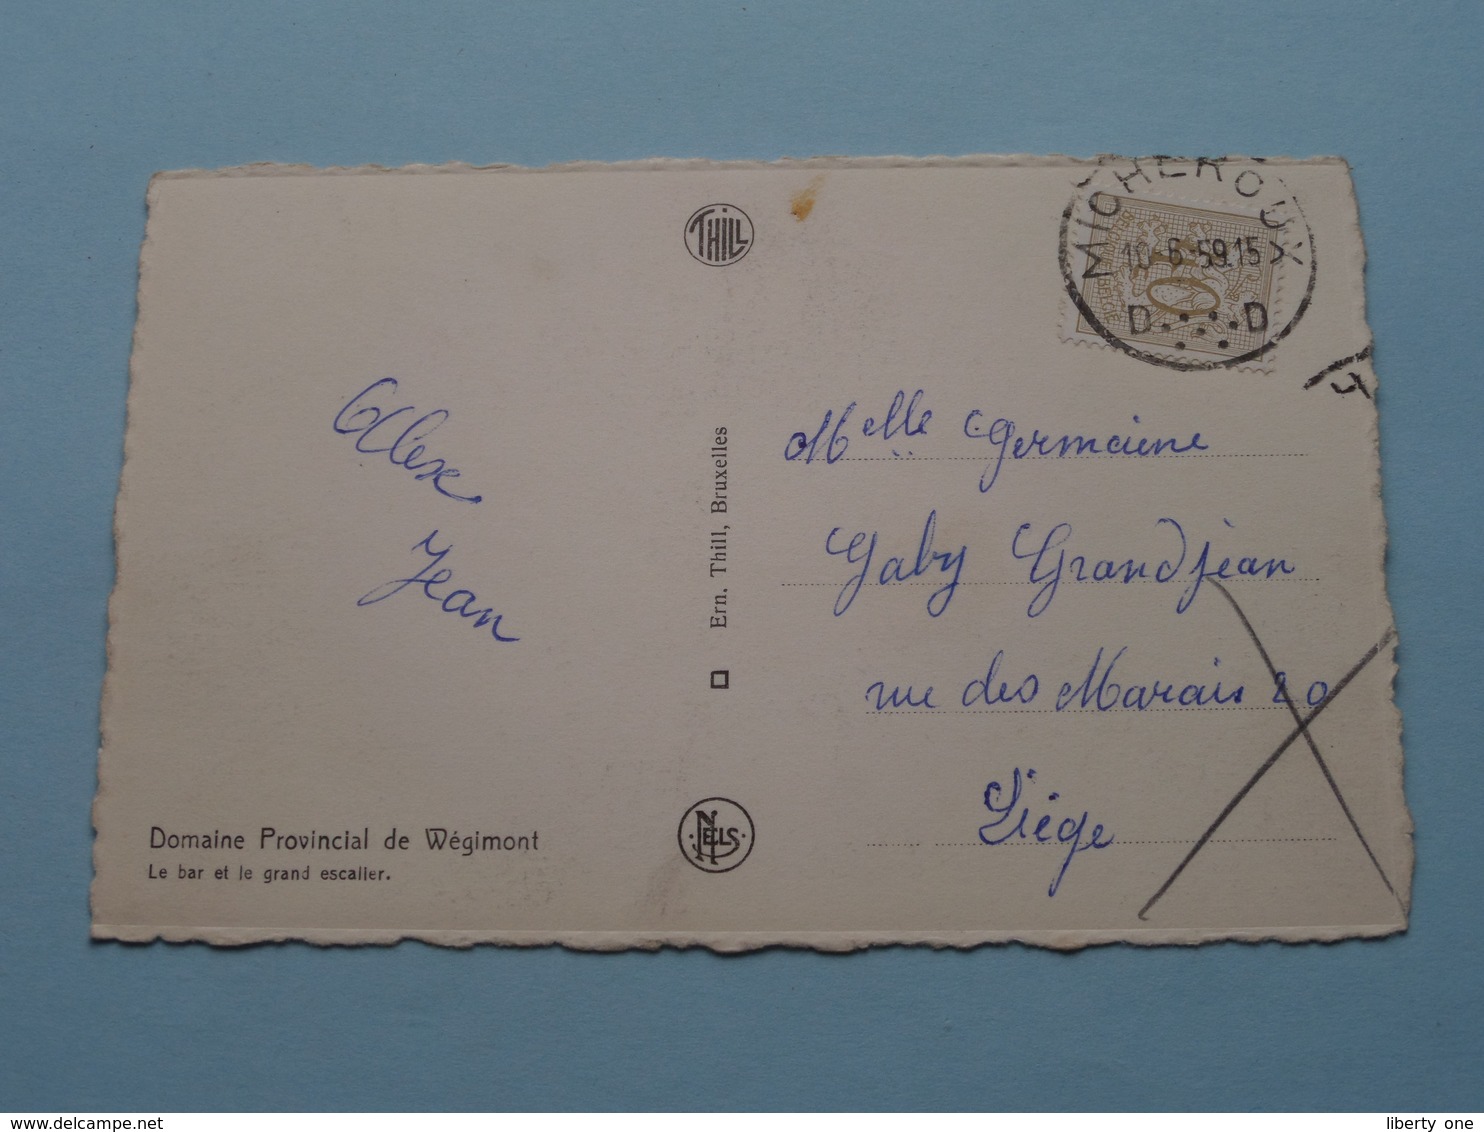 THILL
MICHEROUX
10-6-59.15
D D
Mlle Germaine
Gaby Grandjean
rue des Marais 20
Liège
Alex
Jean
Ern. Thill, Bruxelles
NELS
Domaine Provincial de Wégimont
Le bar et le grand escalier.
liberty one